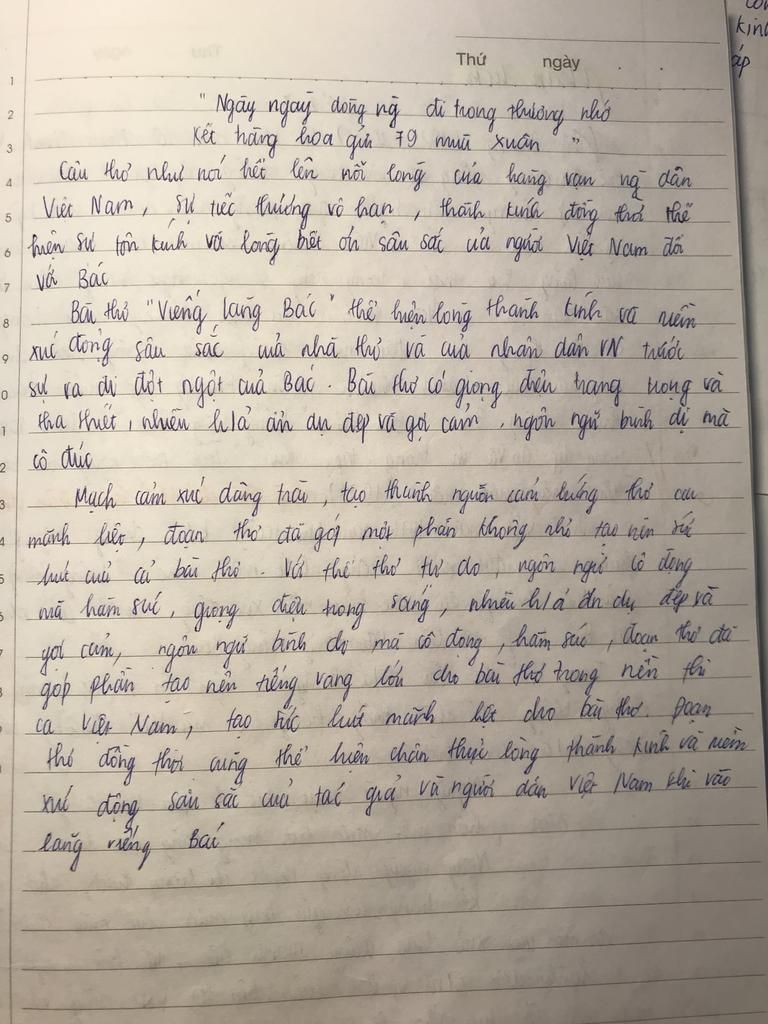 Thứ ngày . .
" Ngày ngày dòng ng đi trong thương nhớ
Kết tràng hoa gửi 79 mùa xuân "
Câu thơ như nói hết lên nỗi lòng của hàng vạn ng dân
Việt Nam, sự tiếc thương vô hạn, thành kính đồng thời thể
hiện sự tôn kính và lòng biết ơn sâu sắc của người Việt Nam đối
với Bác
Bài thơ "Viếng lăng Bác" thể hiện lòng thành kính và niềm
xúc động sâu sắc của nhà thơ và của nhân dân VN trước
sự ra đi đột ngột của Bác. Bài thơ có giọng điệu trang trọng và
tha thiết, nhiều h/ả ẩn dụ đẹp và gợi cảm, ngôn ngữ bình dị mà
cô đúc
Mạch cảm xúc dâng trào, tạo thành nguồn cảm hứng thơ ca
mãnh liệt, đoạn thơ đã góp một phần không nhỏ tạo nên sức
hút của cả bài thơ. Với thể thơ tự do, ngôn ngữ cô đọng
mà hàm súc, giọng điệu trong sáng, nhiều h/ả ẩn dụ đẹp và
gợi cảm, ngôn ngữ bình dị mà cô đọng, hàm súc, đoạn thơ đã
góp phần tạo nên tiếng vang lớn cho bài thơ trong nền thi
ca Việt Nam, tạo sức hút mãnh liệt cho bài thơ. Đoạn
thơ đồng thời cũng thể hiện chân thực lòng thành kính và niềm
xúc động sâu sắc của tác giả và người dân Việt Nam khi vào
lăng viếng Bác